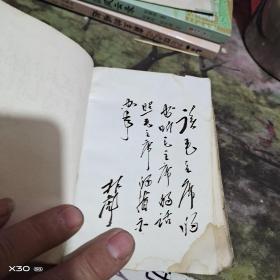 读毛主席的
书听毛主席的话
照毛主席的指示
办事
林彪
X30